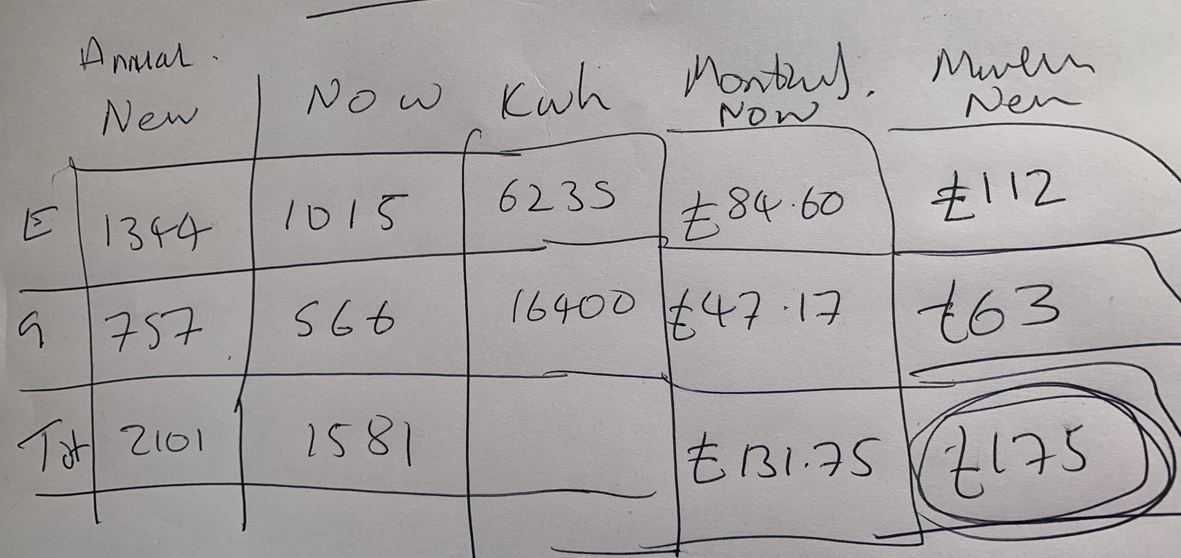 Annual.
New NOW Kwh Monthly. NOW New
E 1344 1015 6235 £84.60 £112
G 757 566 16400 £47.17 £63
Tot 2101 1581 £131.75 £175